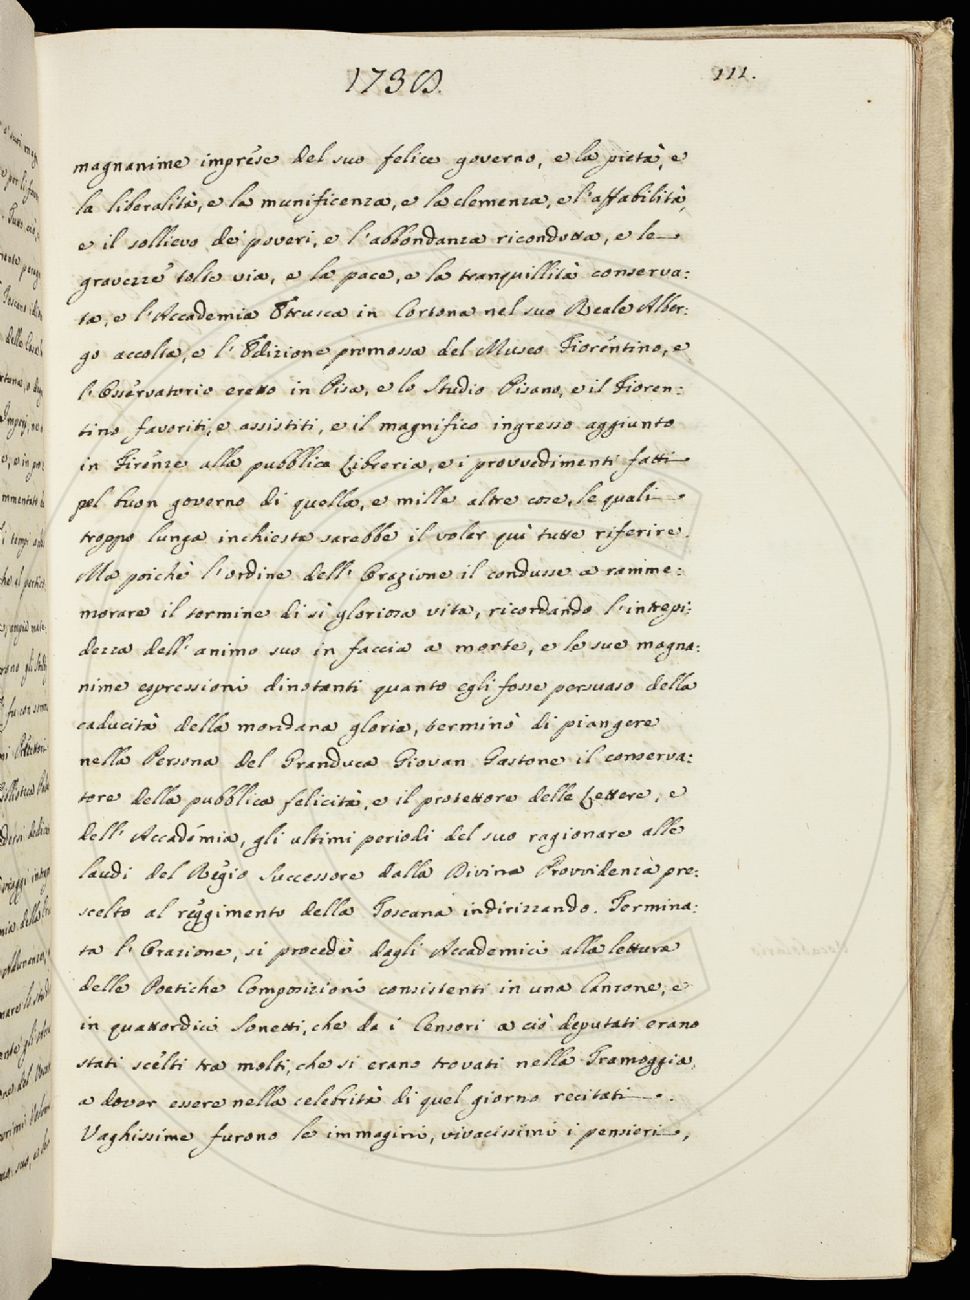 1738.
111.
magnanime imprése del suo felice governo, e la pietà, e
la liberalità, e la munificenza, e la clemenza, e l'affabilità,
e il sollievo dei poveri, e l'abbondanza ricondotta, e le
gravezze tolte via, e la pace, e la tranquillità conserva:
ta, e l'Accademia Etrusca in Cortona nel suo Reale Alber:
go accolta, e l'Edizione promossa del Museo Fiorentino, e
l'Osservatorio eretto in Pisa, e lo Studio Pisano, e il Fioren:
tino favoriti, e assistiti, e il magnifico ingresso aggiunto
in Firenze alla pubblica Libreria, e i provvedimenti fatti
pel buon governo di quella, e mille altre cose, le quali
troppo lunga inchiesta sarebbe il voler quì tutte riferire.
Ma poichè l'ordine dell'Orazione il condusse a ramme:
morare il termine di sì gloriosa vita, ricordando l'intrepi:
dezza dell'animo suo in faccia a morte, e le sue magna:
nime espressioni dinotanti quanto egli fosse persuaso della
caducità della mondana gloria, terminò di piangere
nella Persona del Granduca Giovan Gastone il conserva:
tore della pubblica felicità, e il protettore delle Lettere, e
dell'Accadémia, gli ultimi periodi del suo ragionare alle
laudi del Régio Successore dalla Divina Provvidenza pre:
scelto al reggimento della Toscana indirizzando. Termina:
ta l'Orazione, si procedè dagli Accademici alla lettura
delle Poetiche Composizioni consistenti in una Canzone, e
in quattordici Sonetti, che da i Censori a ciò deputati erano
stati scélti tra molti, che si erano trovati nella Tramoggia,
a dover essere nella celebrità di quel giorno recitati.
Vaghissime furono le immagini, vivacissimi i pensieri,